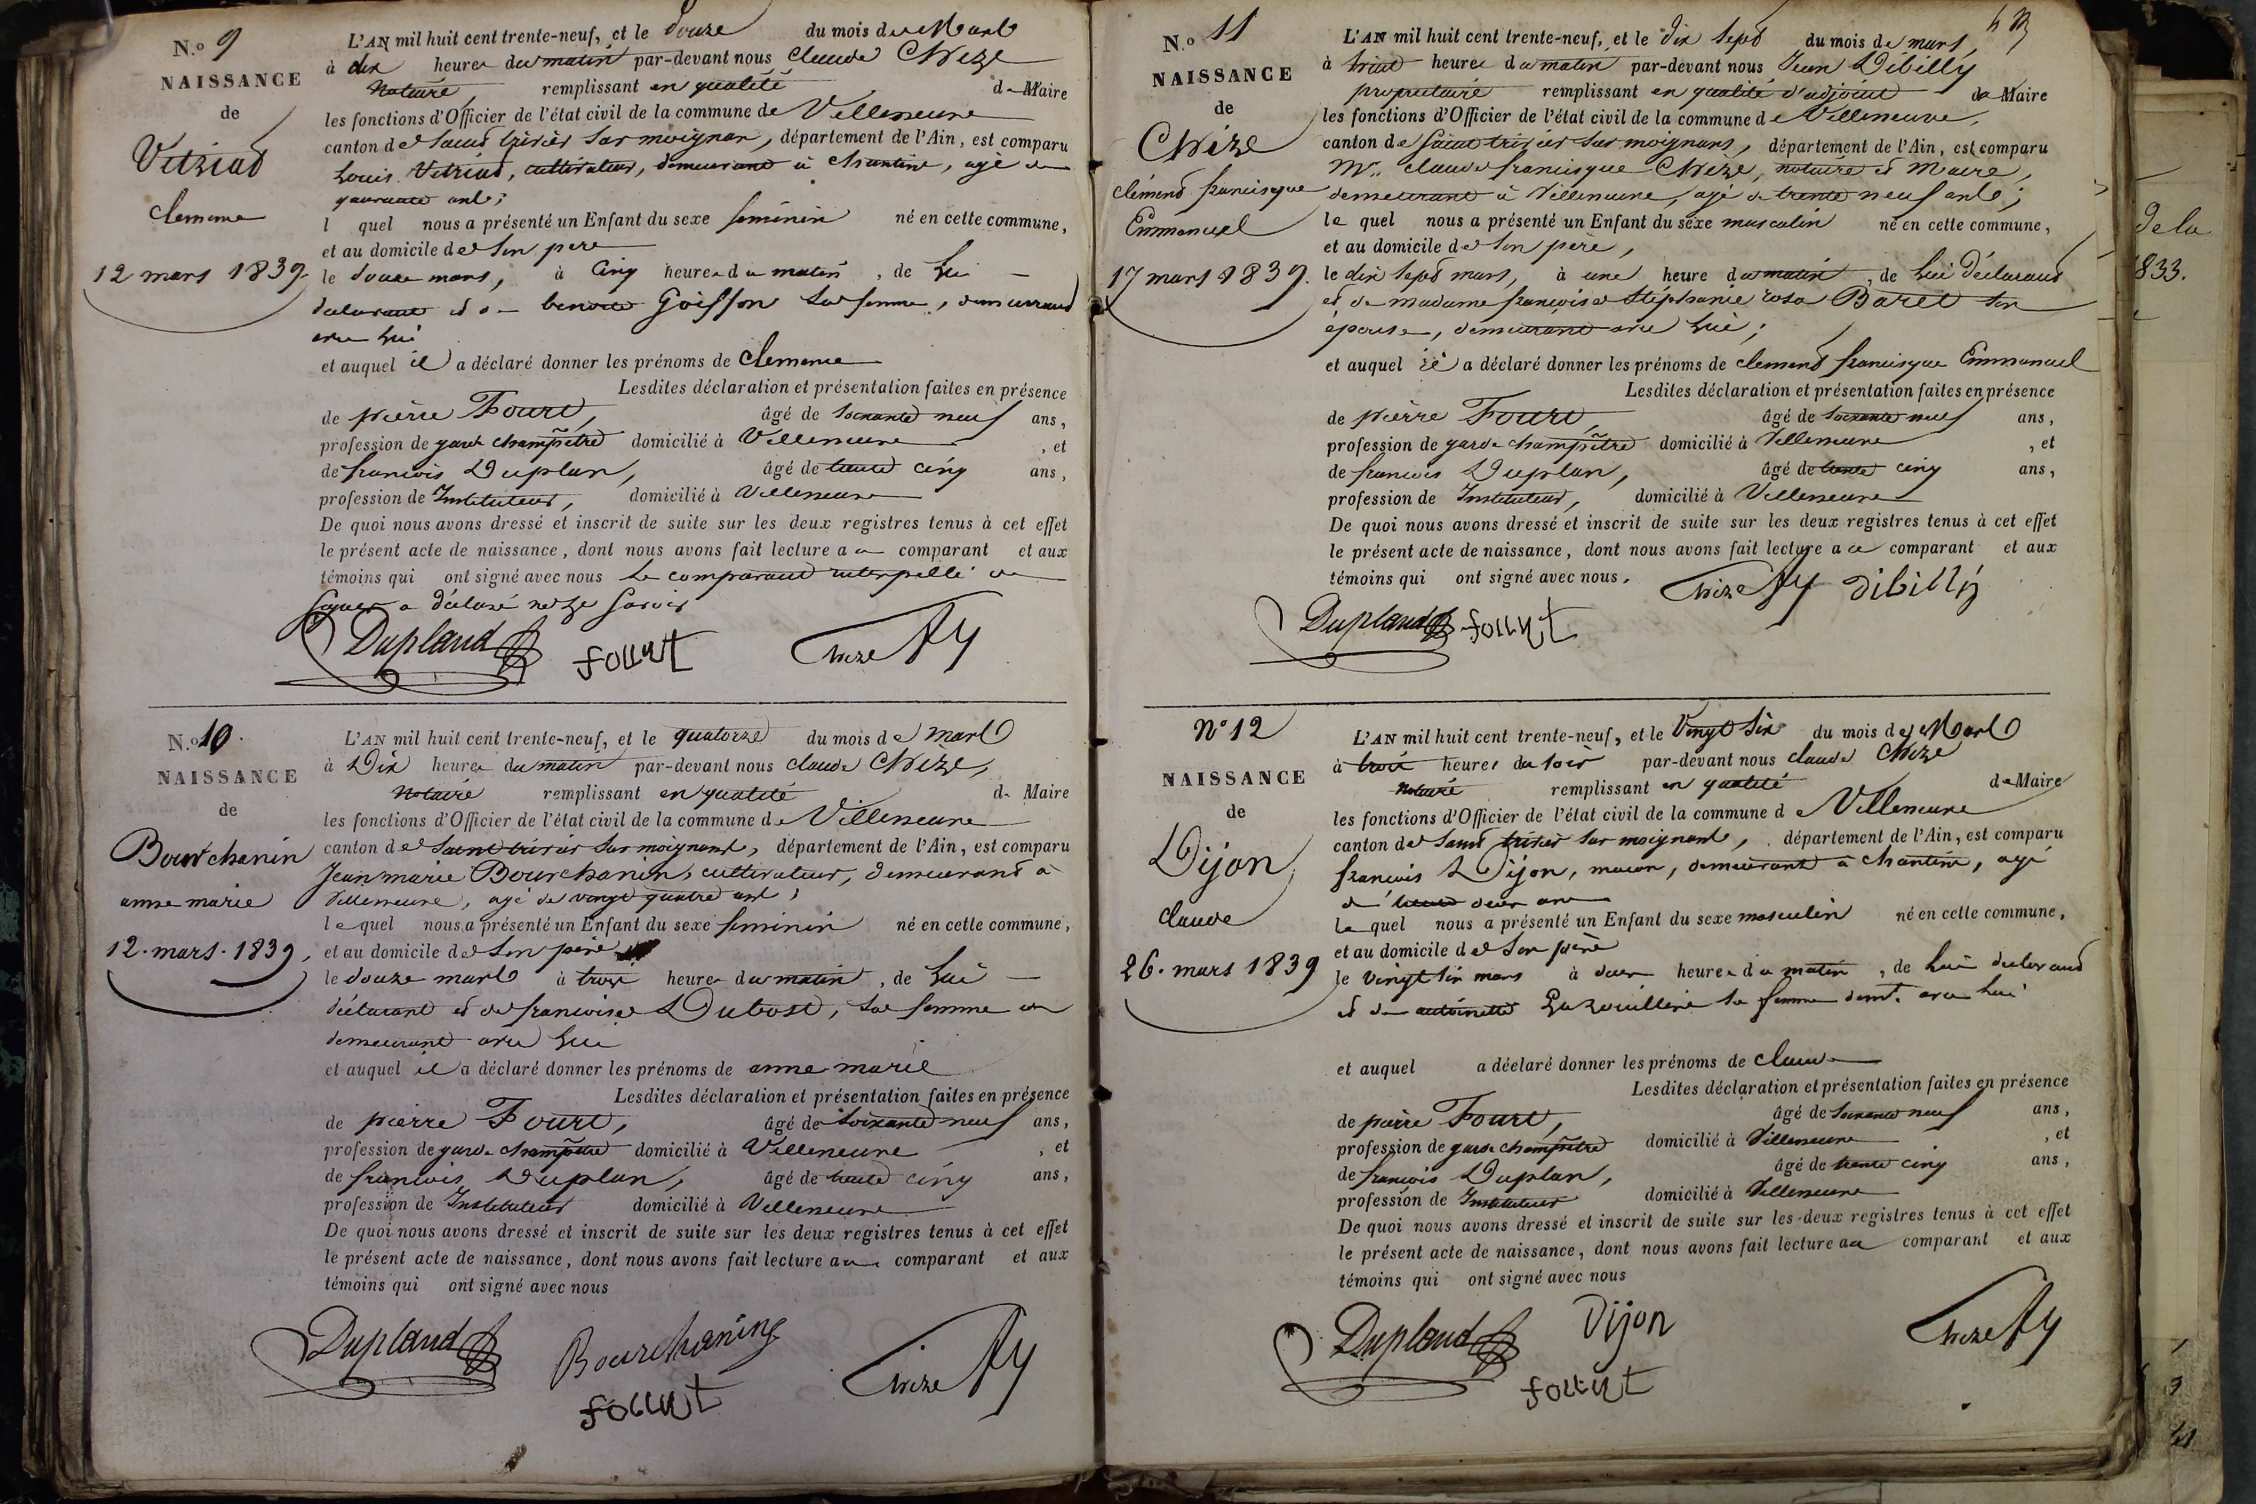 N.o 9
NAISSANCE
de
Vétriad
clemence
12 mars 1839.
L'AN mil huit cent trente-neuf, et le douze du mois de Mars
à dix heures du matin par-devant nous claude Chize
Notaire remplissant en qualité de Maire
les fonctions d'Officier de l'état civil de la commune de Villeneuve
canton de Saint trivier sur moignans, département de l'Ain, est comparu
Louis Vetriad, cultivateur, demeurant à Chantine, agé de
quarante ans;
l quel nous a présenté un Enfant du sexe feminin né en cette commune,
et au domicile de son pere
le douze mars, à cinq heures du matin, de lui
déclarant et de benoite Goiffon sa femme, demeurant
avec lui
et auquel il a déclaré donner les prénoms de clemence
Lesdites déclaration et présentation faites en présence
de pierre Fourt, âgé de soixante neuf ans,
profession de garde champêtre domicilié à Villeneuve, et
de francois Duplan, âgé de trente cinq ans,
profession de Instituteur, domicilié à Villeneuve
De quoi nous avons dressé et inscrit de suite sur les deux registres tenus à cet effet
le présent acte de naissance, dont nous avons fait lecture au comparant et aux
témoins qui ont signé avec nous le comparant interpellé de
signer a déclaré ne le savoir
Dupland fourt Chize
N.o 10.
NAISSANCE
de
Bourchanin
anne marie
12. mars. 1839,
L'AN mil huit cent trente-neuf, et le quatorze du mois de mars
à Dix heures du matin par-devant nous claude Chize,
Notaire remplissant en qualité de Maire
les fonctions d'Officier de l'état civil de la commune de Villeneuve
canton de Saint trivier sur moignans, département de l'Ain, est comparu
Jean marie Bourchanin, cultivateur, demeurant à
Villeneuve, agé de vingt quatre ans,
le quel nous a présenté un Enfant du sexe feminin né en cette commune,
et au domicile de son père
le douze mars à trois heures du matin, de lui
déclarant et de francoise Dubost, sa femme
demeurant avec lui
et auquel il a déclaré donner les prénoms de anne marie
Lesdites déclaration et présentation faites en présence
de pierre Fourt, âgé de soixante neuf ans,
profession de garde champêtre domicilié à Villeneuve, et
de francois Duplan, âgé de trente cinq ans,
profession de Instituteur domicilié à Villeneuve
De quoi nous avons dressé et inscrit de suite sur les deux registres tenus à cet effet
le présent acte de naissance, dont nous avons fait lecture au comparant et aux
témoins qui ont signé avec nous
Dupland Bourchaning Chize
fourt
N.o 11
NAISSANCE
de
Chize
clémend francisque
Emmanuel
17 mars 1839.
L'AN mil huit cent trente-neuf, et le dix sept du mois de mars,
à huit heures du matin par-devant nous Jean Dibilly
propriétaire remplissant en qualité d'adjoint de Maire
les fonctions d'Officier de l'état civil de la commune de Villeneuve,
canton de Saint trivier sur moignans, département de l'Ain, est comparu
Mr. claude francisque Chize, notaire et Maire,
demeurant à Villeneuve, agé de trente neuf ans;
le quel nous a présenté un Enfant du sexe masculin né en cette commune,
et au domicile de son père,
le dix sept mars, à une heure du matin, de lui déclarant
et de madame francoise Stéphanie rosa Baret son
épouse, demeurant avec lui;
et auquel il a déclaré donner les prénoms de clemend francisque Emmanuel
Lesdites déclaration et présentation faites en présence
de pierre Fourt, âgé de soixante neuf ans,
profession de garde champêtre domicilié à Villeneuve, et
de francois Duplan, âgé de trente cinq ans,
profession de Instituteur, domicilié à Villeneuve
De quoi nous avons dressé et inscrit de suite sur les deux registres tenus à cet effet
le présent acte de naissance, dont nous avons fait lecture a ce comparant et aux
témoins qui ont signé avec nous. Chize dibilly
Dupland fourt
N° 12
NAISSANCE
de
Dijon
claude
26. mars 1839
L'AN mil huit cent trente-neuf, et le vingt six du mois de Mars
à trois heures du soir par-devant nous claude Chize
notaire remplissant en qualité de Maire
les fonctions d'Officier de l'état civil de la commune de Villeneuve
canton de Saint trivier sur moignans, département de l'Ain, est comparu
francois Dijon, macon, demeurant à Chantine, agé
de trente deux ans
le quel nous a présenté un Enfant du sexe masculin né en cette commune,
et au domicile de son père
le vingt six mars à deux heures du matin, de lui declarant
et de antoinette Larouillerie sa femme demt. avec lui
et auquel a déclaré donner les prénoms de claude
Lesdites déclaration et présentation faites en présence
de pierre Fourt, âgé de soixante neuf ans,
profession de garde champêtre domicilié à Villeneuve, et
de francois Duplan, âgé de trente cinq ans,
profession de Instituteur domicilié à Villeneuve
De quoi nous avons dressé et inscrit de suite sur les deux registres tenus à cet effet
le présent acte de naissance, dont nous avons fait lecture au comparant et aux
témoins qui ont signé avec nous
Dupland Dijon Chize
fourt
de la
1833.